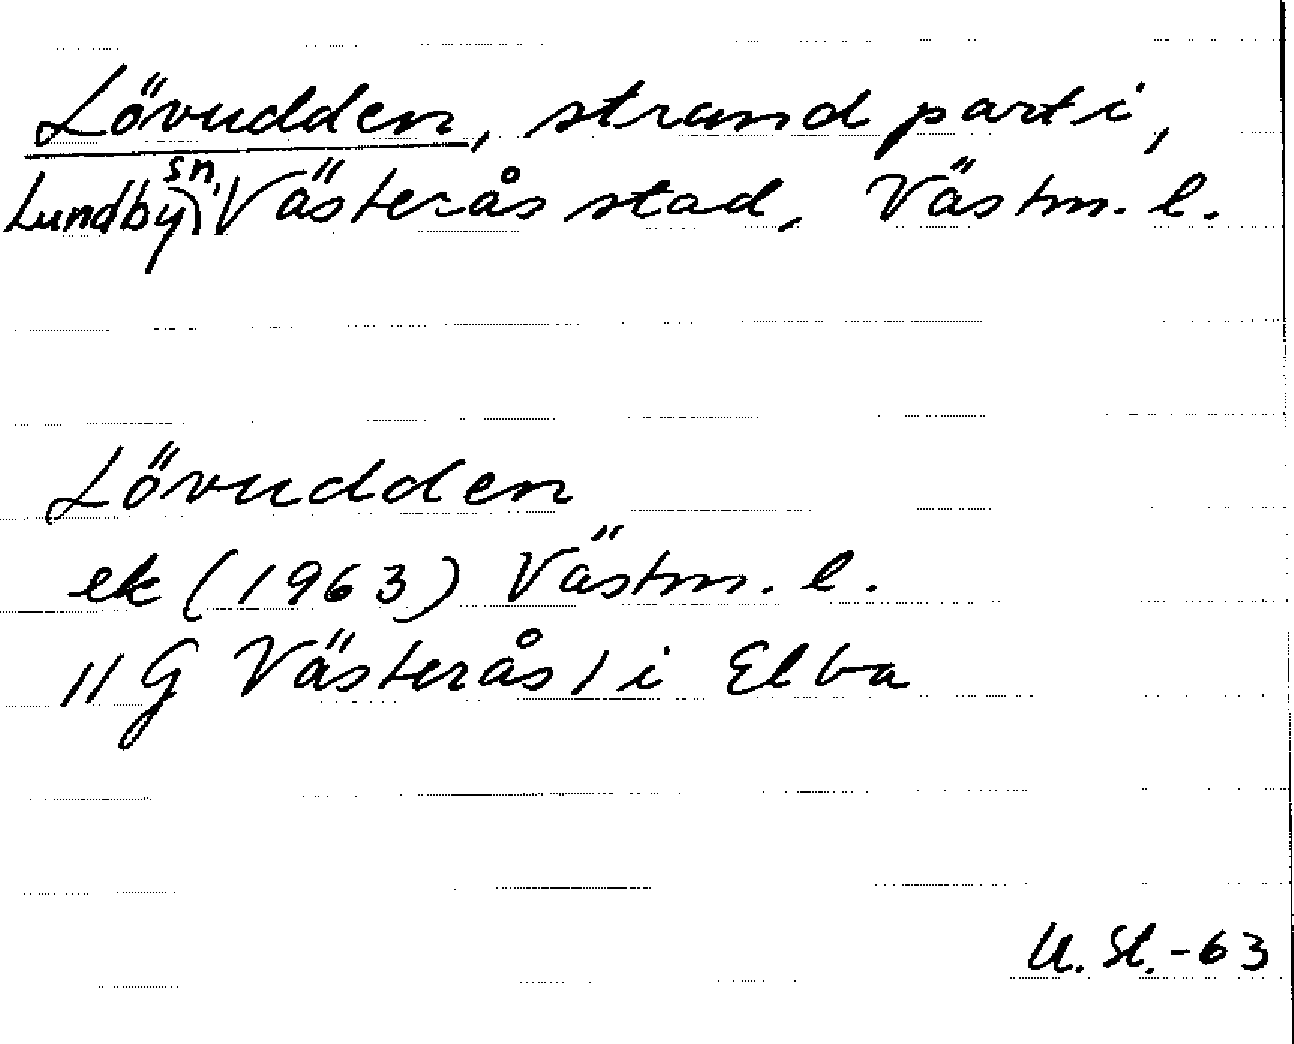 Lövudden, strandparti,
Lundby sn, Västerås stad, Västm. l.
Lövudden
ek (1963) Västm. l.
11 G Västerås 1 i Elba
U. St. -63